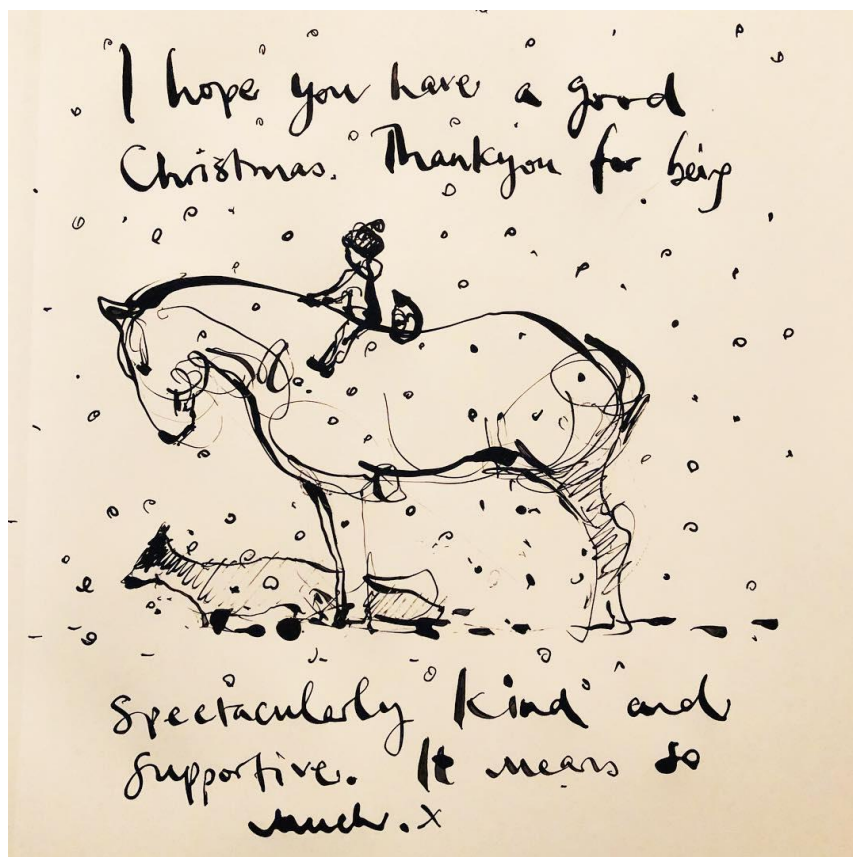 I hope you have a good
Christmas. Thankyou for being
spectacularly kind and
supportive. It means so
much. x